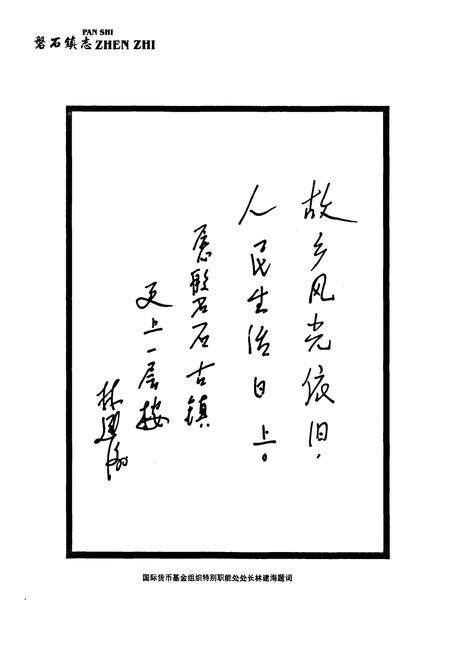 PAN SHI
磐石镇志 ZHEN ZHI
故乡风光依旧，
人民生活日上。
愿磐石古镇
更上一层楼
林建海
国际货币基金组织特别职能处处长林建海题词